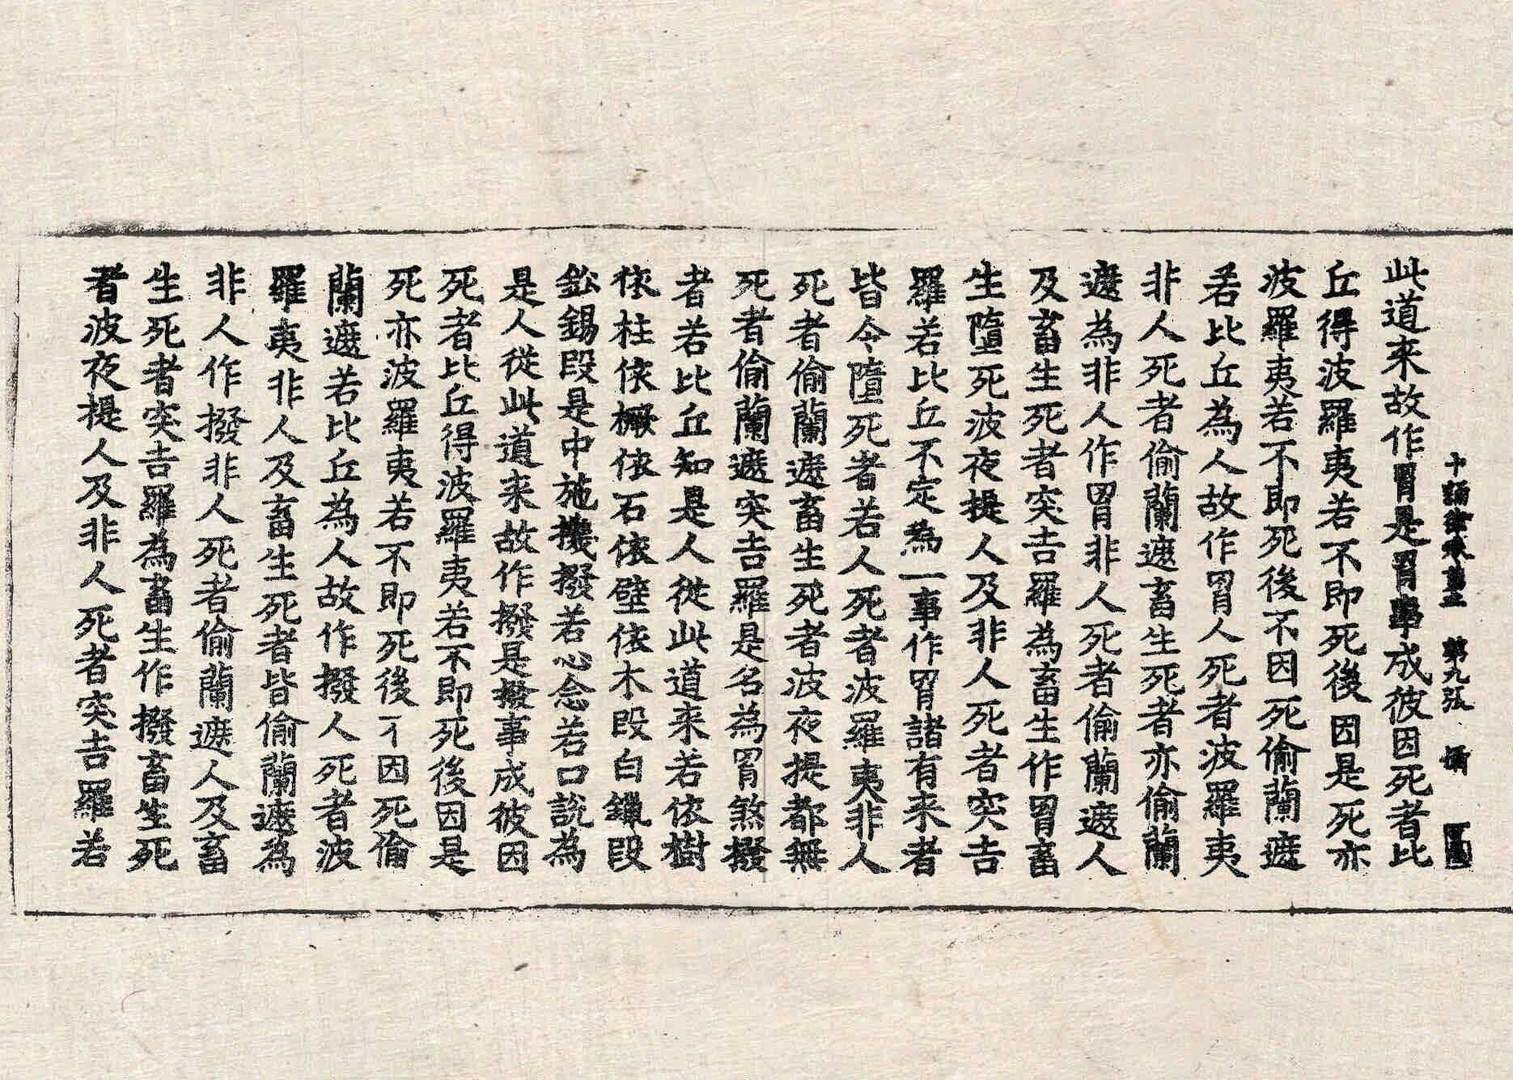 十誦律卷第二 第九張
此道来故作罥是罥事成彼因死者比
丘得波羅夷若不即死後因是死亦
波羅夷若不即死後不因死偷蘭遮
若比丘為人故作罥人死者波羅夷
非人死者偷蘭遮畜生死者亦偷蘭
遮為非人作罥非人死者偷蘭遮人
及畜生死者突吉羅為畜生作罥畜
生墮死波夜提人及非人死者突吉
羅若比丘不定為一事作罥諸有来者
皆令墮死者若人死者波羅夷非人
死者偷蘭遮畜生死者波夜提都無
死者偷蘭遮突吉羅是名為罥煞撥
者若比丘知是人從此道来若依樹
依柱依橛依石依壁依木段白鑞段
鈆錫段是中施機撥若心念若口說為
是人從此道来故作撥是撥事成彼因
死者比丘得波羅夷若不即死後因是
死亦波羅夷若不即死後不因死偷
蘭遮若比丘為人故作撥人死者波
羅夷非人及畜生死者皆偷蘭遮為
非人作撥非人死者偷蘭遮人及畜
生死者突吉羅為畜生作撥畜生死
者波夜提人及非人死者突吉羅若